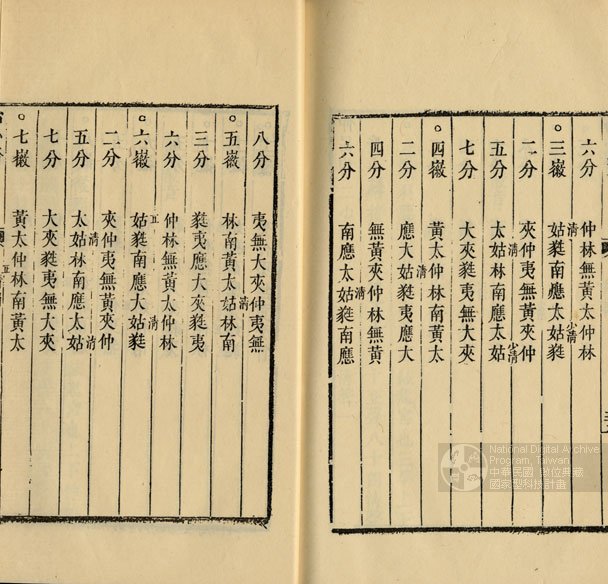 六分 仲林無黃太仲林
三徽 姑蕤南應大姑蕤 清 少清
二分 夾仲夷無黃夾仲 清 少清
五分 太姑林南應太姑
七分 大夾蕤夷無大夾
四徽 黃太仲林南黃太 清
二分 應大姑蕤夷應大
四分 無黃夾仲林無黃
六分 南應太姑蕤南應 清
八分 夷無大夾仲夷無
五徽 林南黃太姑林南 清
三分 蕤夷應大夾蕤夷
六分 仲林無黃太仲林 清
六徽 姑蕤南應大姑蕤
二分 夾仲夷無黃夾仲
五分 太姑林南應太姑 清 清
七分 大夾蕤夷無大夾
七徽 黃太仲林南黃太
National Digital Archive
Program, Taiwan
中華民國 數位典藏
國家型科技計畫